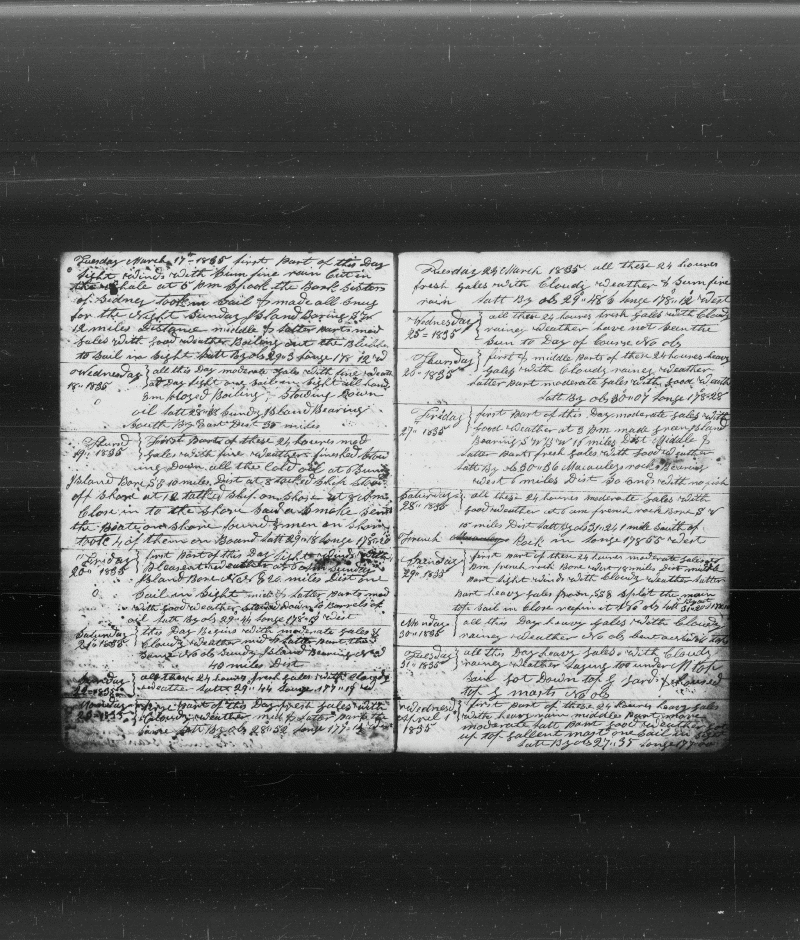 Tuesday March 17= 1835 first Part of this Day
light winds with Sum fine rain Cut in
the whale at 5 Pm Spook the Bark Sisters
of Sidney took in Sail & made all Snug
for the Night Sunday Island Baring
12 miles Distance middle & latter Parts mod
Gales with Good weather Boiling out the Blubber
to Sail in Sight Latt By obs 29"3 Longe 178"12 wd
Wednesday
18" 1835
all this Day moderate Gales with fine weath
at Day light one Sail in Sight all hand
Employed Boiling & Stowing Down
oil Latt Sunday Island Bearing
South By East Dist 35 miles
Thurs
19" 1835
First Parts of these 24 houres mod
Gales with fine weather finished Stow
ing Down all the Cold oil at 6 Sunday
Island Bore 10 miles Dist at 8 tacked Ship Stood
off Shore at 12 tacked Ship on Shore at 8 am
Close in to the Shore Saw a Smoke Sent
the Boate on Shore found 8 men on Shore
took 4 of them on Board Latt 29"18 Longe 178"20
Friday
20" 1835
first Part of this Day light winds with
Pleasant weather at 6 Pm Sunday
Island Bore 20 miles Dist one
Sail in Sight mid & latter Parts mod
with good weather Stowed Down 10 Barrels of
oil Latt By obs 29"44 Longe 178=9 West
Saturday
21" 1835
this Day Begins with moderate Gales &
Cloudy weather mid & latter Part the
Same No ob Sunday Island Bearing
40 miles Dist
Sunday
22= 1835
all these 24 houres fresh Gales with Cloudy
weather Latt 29"44 Longe 177"19 wd
Monday
23= 1835
fore Part of this Day fresh Gales with
Cloudy weather mid & latter Part the
Same Latt By obs 28"52 Longe 177"
Tuesday 24 March 1835 all these 24 houres
fresh Gales with Cloudy weather & Sum fine
rain Latt By obs 29"48 Longe 178"12 West
Wednesday
25= 1835
all these 24 houres fresh Gales with Cloudy
rainey weather have not Seen the
Sun to Day of Course No obs
Thursday
26= 1835
first & middle Parts of these 24 houres heavy
Gales with Cloudy rainey weather
latter Part moderate Gales with Good weath
Latt By obs 30=07 Longe 178=28
Friday
27" 1835
first Part of this Day moderate Gales with
Good weather at 3 Pm made Island
Bearing 16 miles Dist Middle &
latter Parts fresh Gales with Good weather
Latt By obs 30=36 Macauleys rock Bearing
West 6 miles Dist So ends with no fish
Saturday
28" 1835
all these 24 houres moderate Gales with
Good weather at 6 am french rock Bore
10 miles Dist Latt By obs 31"24 1 mile South of
French Rock in Longe 178 55 West
Sunday
29" 1835
first Part of these 24 houres moderate Gales
Pm french rock Bore West 18 miles Dist middle
Part light winds with Cloudy weather latter
Part heavy Gales from Split the main
top Sail in Close reefin it No obs
Monday
30= 1835
all this Day heavy Gales with Cloudy
rainey weather No ob
Tuesday
31" 1835
all this Day heavy Gales with Cloudy
rainey weather laying too under M top
Sail Got Down top G yard & housed
top G masts No obs
Wednesd
Aprel 1
1835
first Part of these 24 houres heavy Gales
with heavy rain middle Part more
moderate latt Part Good weather Got
up top Gallent mast one Sail in Sight
Latt By obs 27"35 Longe 177